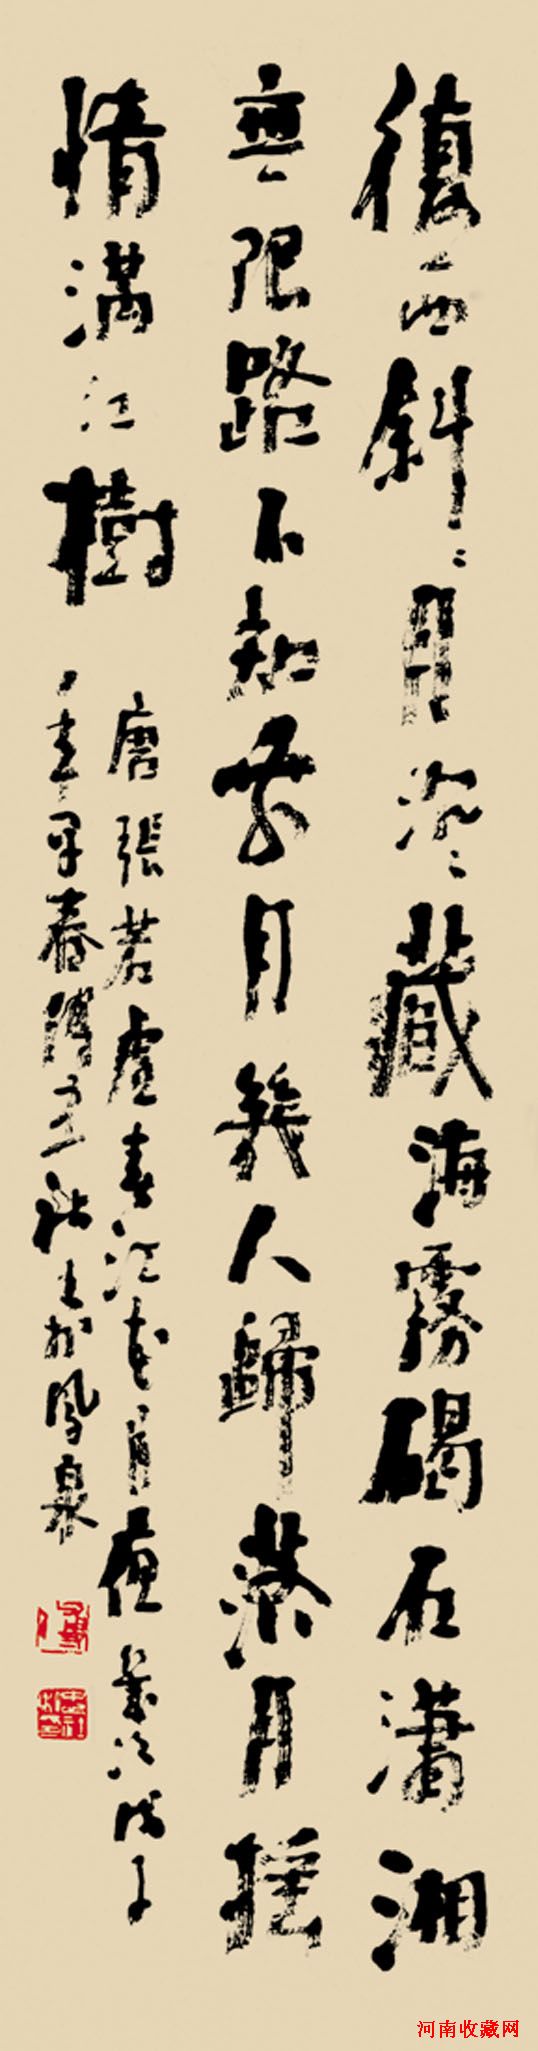 復西斜々月沉々藏海霧碣石瀟湘
無限路不知乘月幾人歸落月摇
情滿江樹
唐張若虛春江花月夜歲次戊子
年早春傅書於鳳泉
河南收藏网